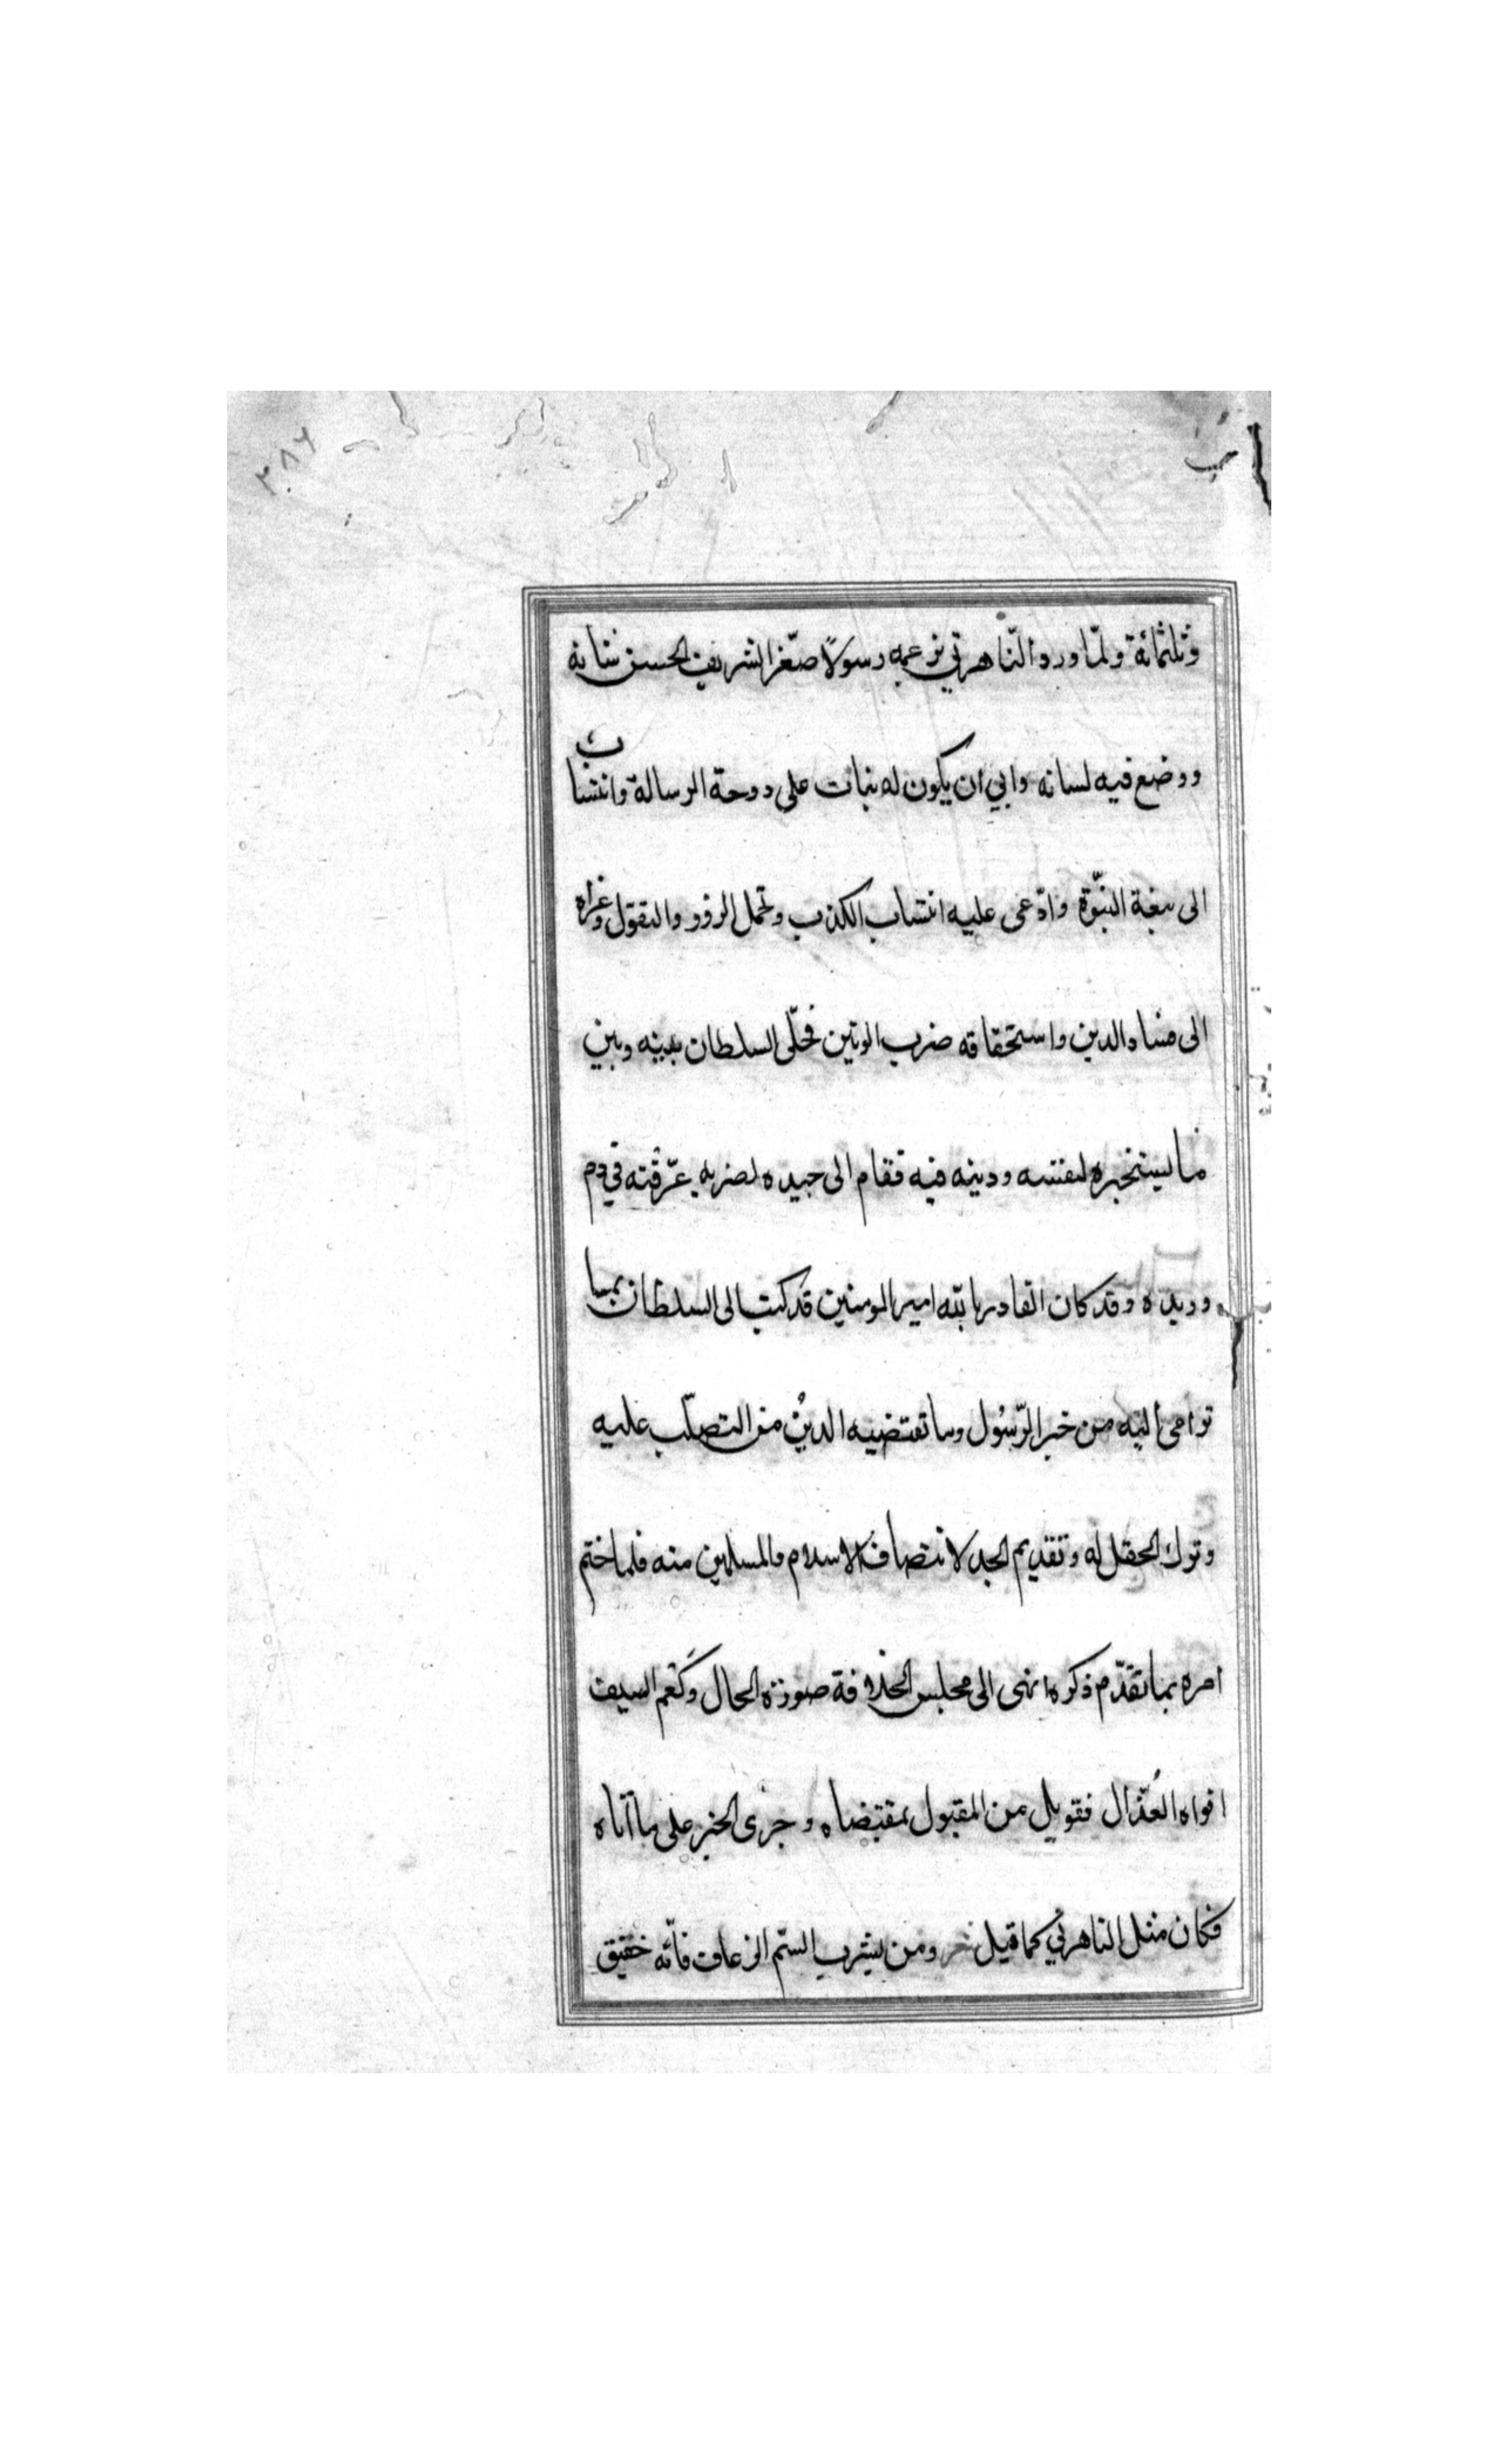 ٢٠٨٦
وثلثمائة ولمّا ورد التّاهرتي بزعمه رسولًا صغّر الشريف الحسن شانه
ووضع فيه لسانه وابي ان يكون له نبات على دوحة الرسالة وانتساب
الى نبغة النبّوة وادّعى عليه انتساب الكذب وتحمل الزور والتقول وعزاه
الى فساد الدين واستحقاقه ضرب الوتين فخلّى السلطان بينه وبين
ما ليستخيره لنفسه ودينه فيه فقام الى جيده لضربه عرّفته في دم
وريده وقد كان القادر بالله امير المومنين قد كتب الى السلطان بما
ترامى اليه من خبر الرّسُول وما تقتضيه الدين من التصلّب عليه
وترك الحقل له وتقديم الجد لانتصاف الاسلام والمسلمين منه فلما ختم
امره بما تقدّم ذكره انهى الى مجلس الخلافة صورة الحال وكعم السيف
افواه العُذّال فقوبل من المقبول بمقتضاه وجرى الخبر على ما اتاه
فكان مثل التاهرتي كما قيل ومن يشرب السّم الزعاف فانّه خقيق